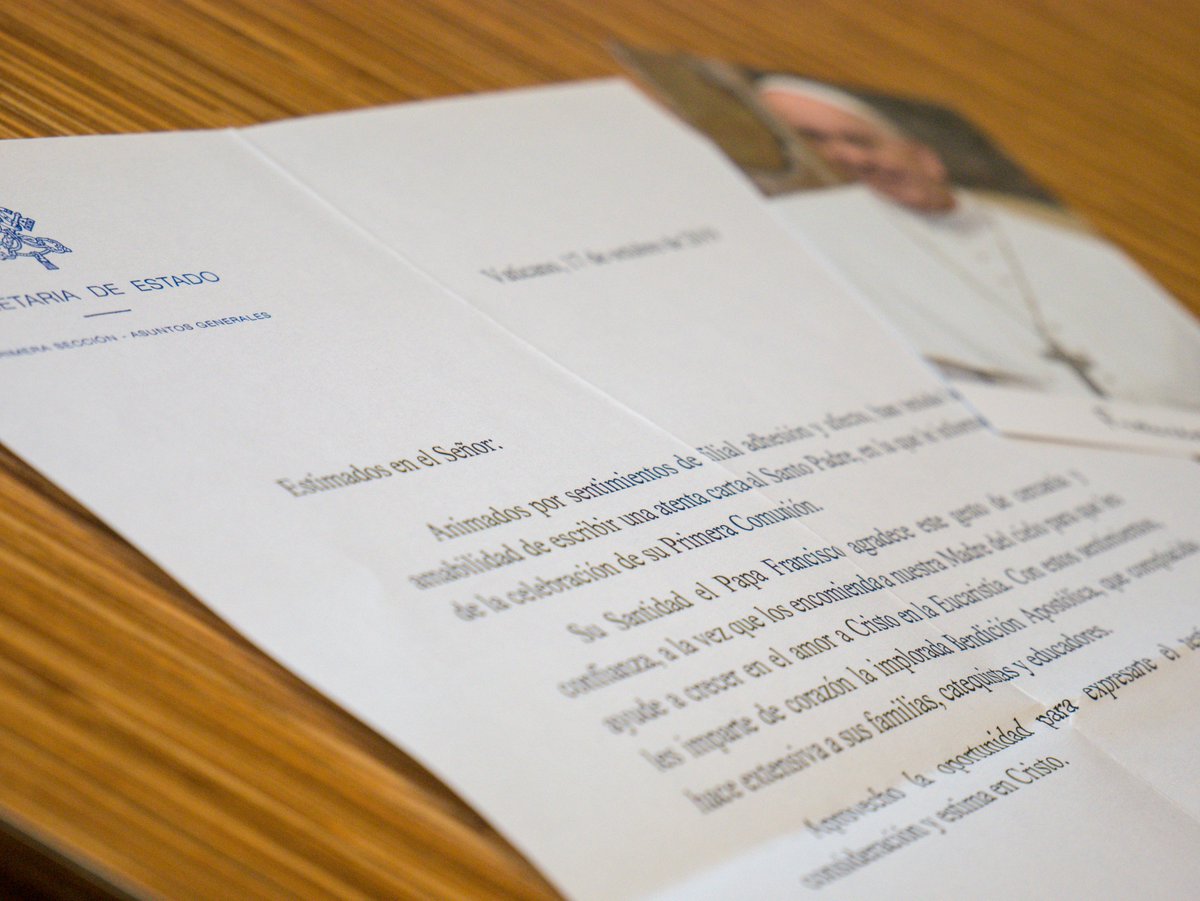 ETARIA DE ESTADO
RIMERA SECCIÓN - ASUNTOS GENERALES
Vaticano, 17 de
Estimados en el Señor:
Animados por sentimientos de filial adhesión y afecto, han tenido
amabilidad de escribir una atenta carta al Santo Padre, en la que le informa
de la celebración de su Primera Comunión.
Su Santidad el Papa Francisco agradece este gesto de cercanía y
confianza, a la vez que los encomienda a nuestra Madre del cielo para que les
ayude a crecer en el amor a Cristo en la Eucaristía. Con estos sentimientos,
les imparte de corazón la implorada Bendición Apostólica, que complacido
hace extensiva a sus familias, catequistas y educadores.
Aprovecho la oportunidad para expresarle el
consideración y estima en Cristo.